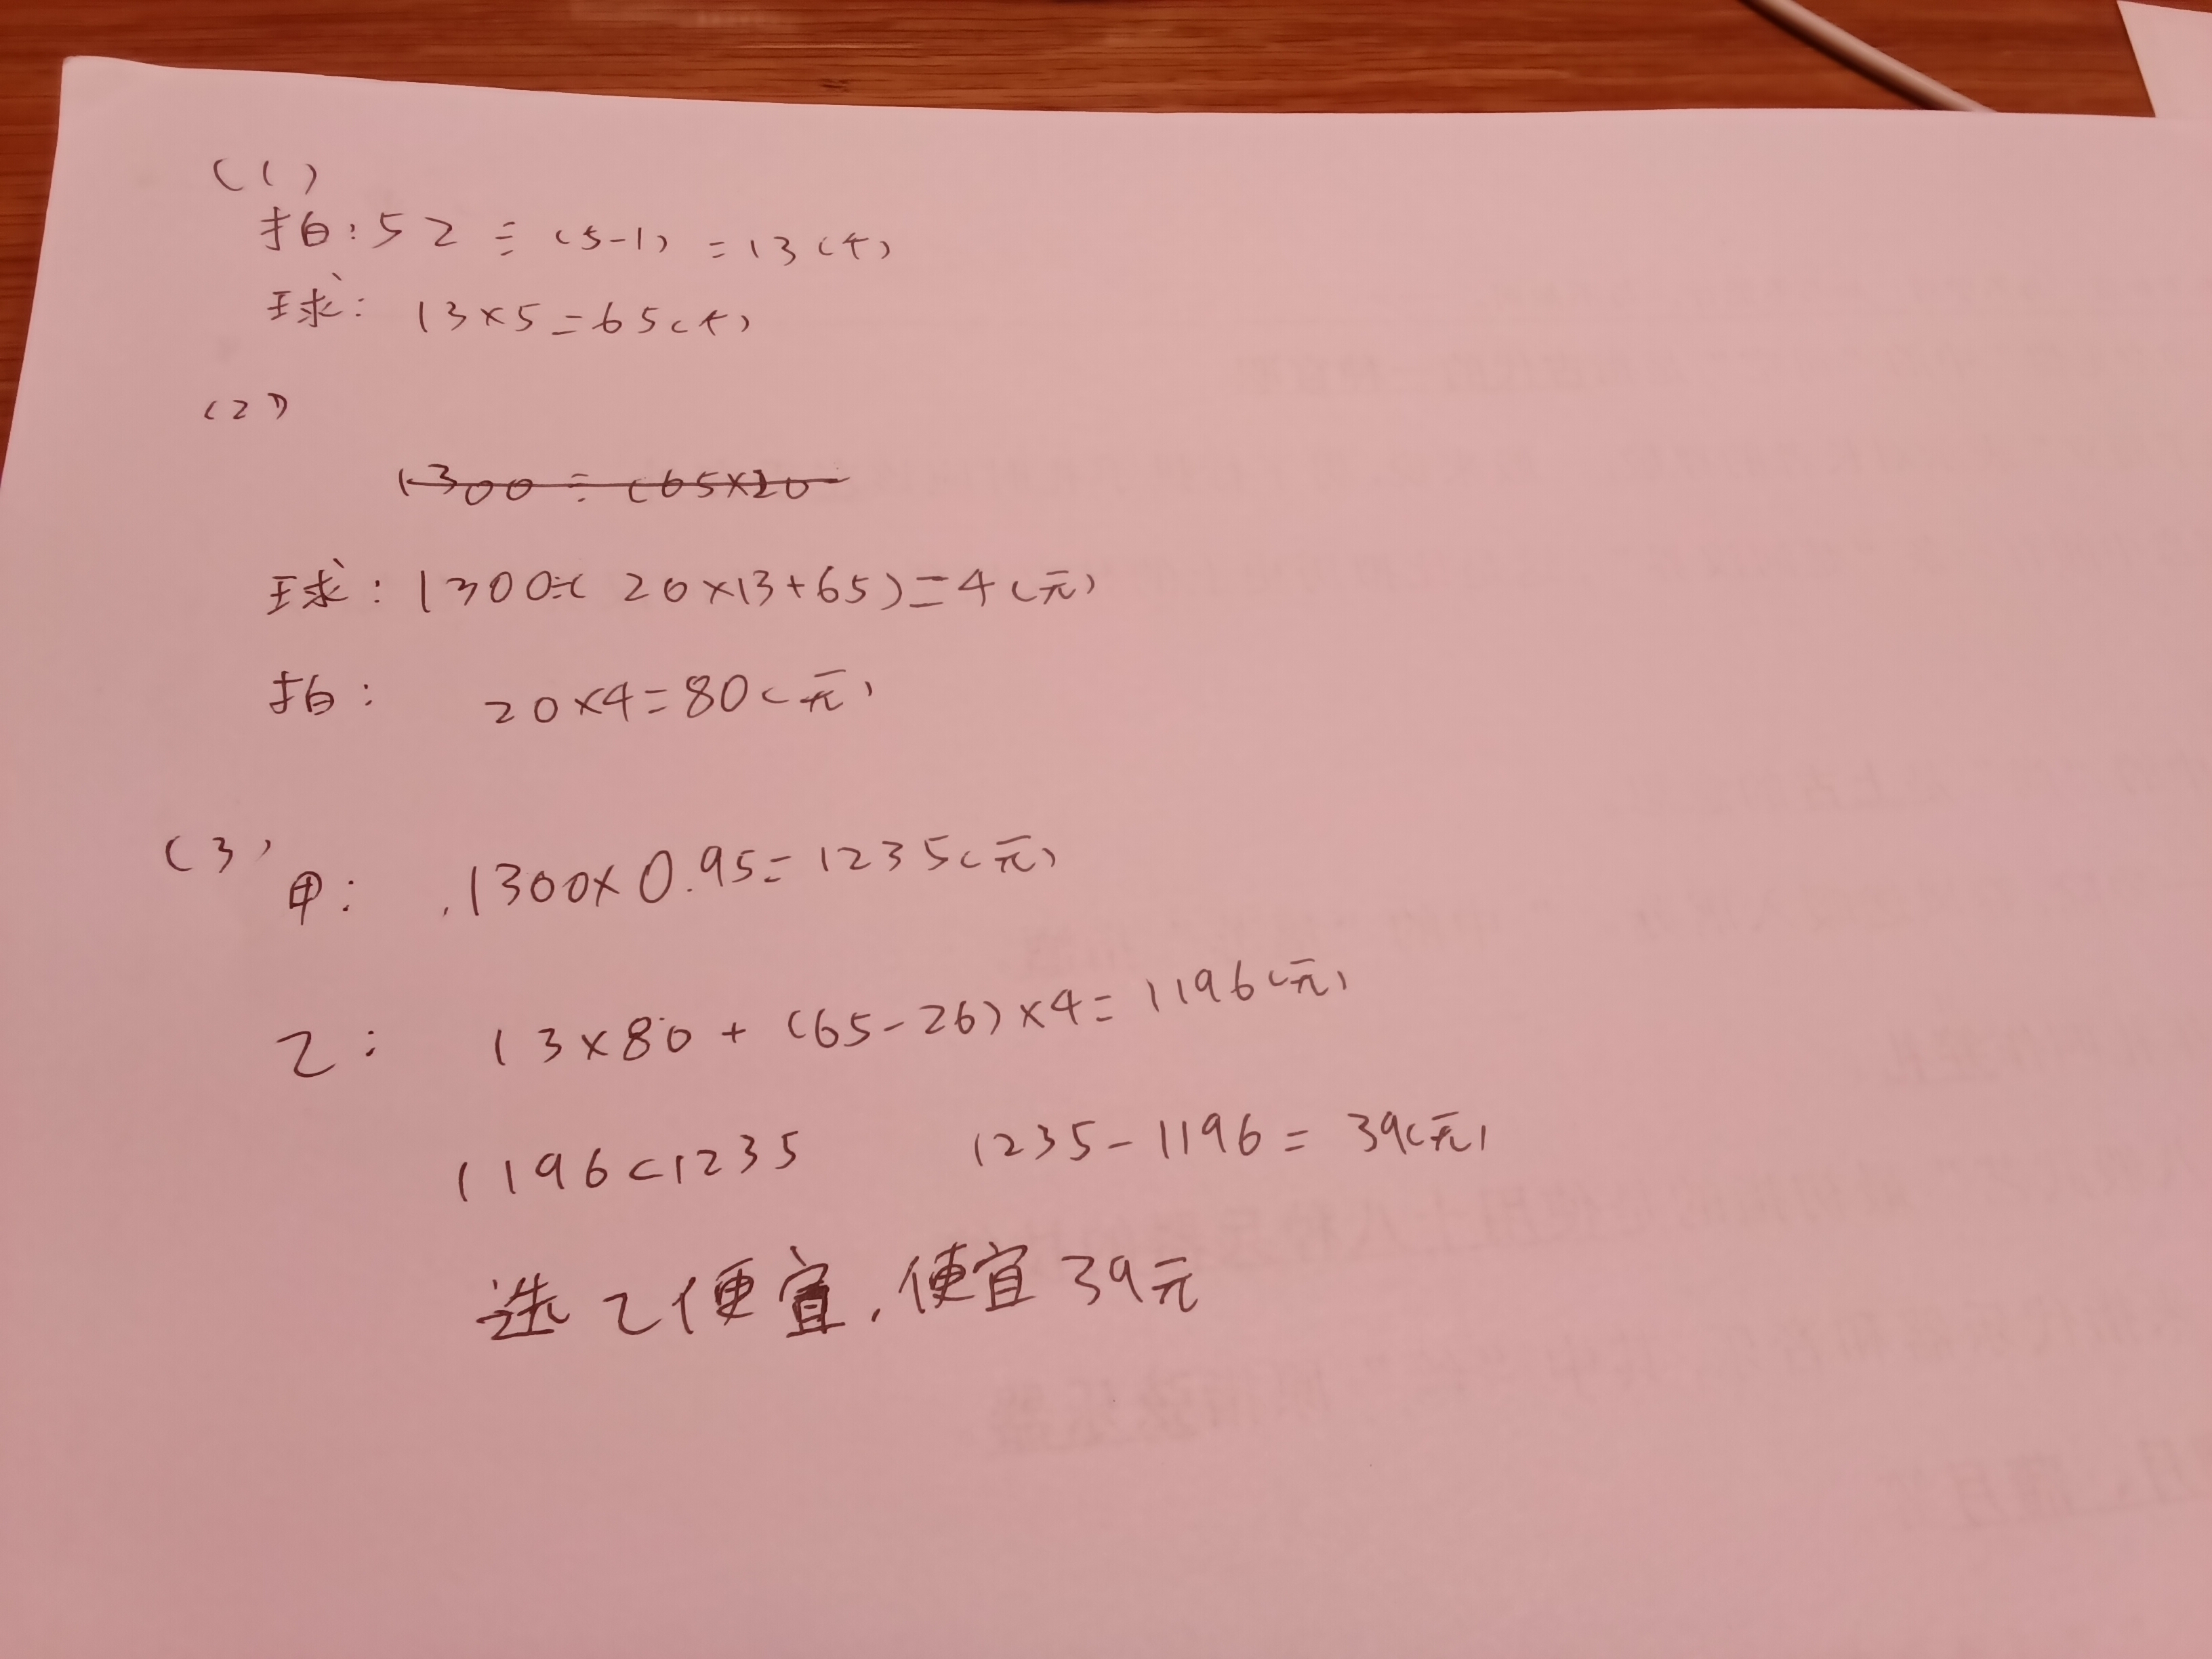 (1)
拍:52÷(5-1)=13(个)
球:13×5=65(个)
(2)
1300÷(65×20
球:1300÷(20×13+65)=4(元)
拍:20×4=80(元)
(3)
甲:1300×0.95=1235(元)
乙:13×80+(65-26)×4=1196(元)
1196<1235 1235-1196=39(元)
选乙便宜,便宜39元